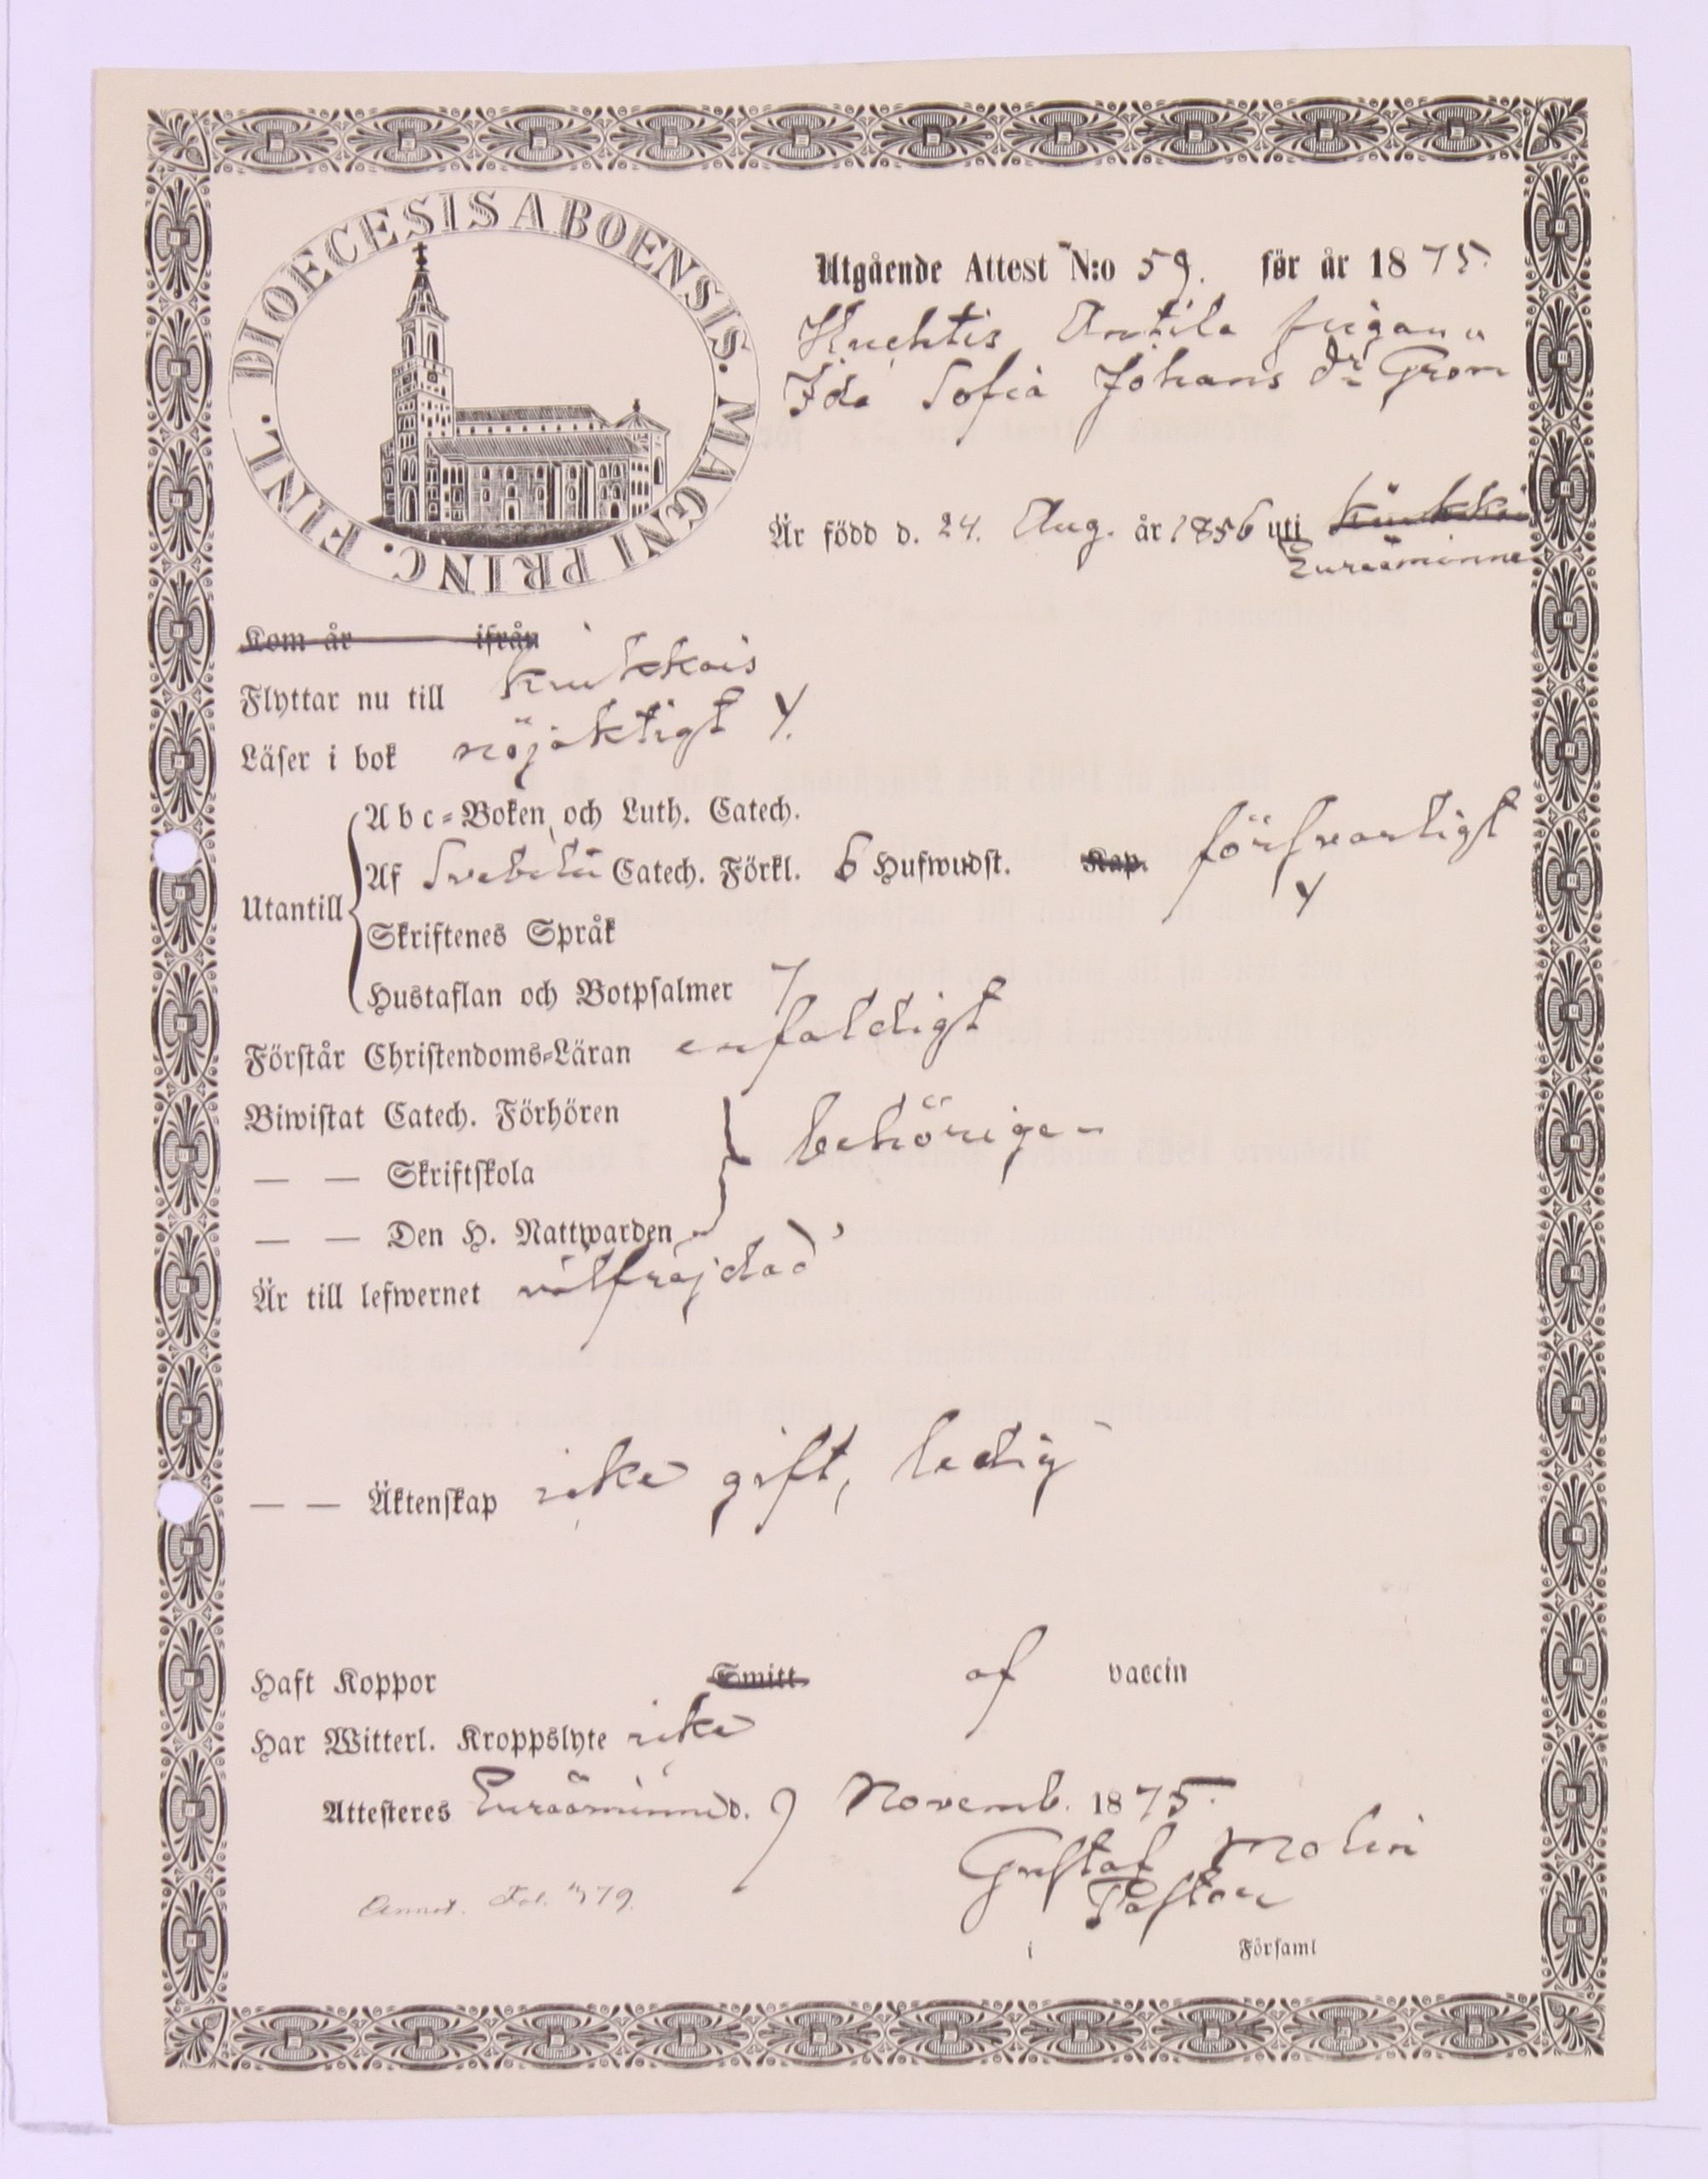 DIOECESIS ABOENSIS. MAGNI PRINC. FINL.
Utgående Attest N:o 59. för år 1875.
Huchtis Antila pigan
Ida Sofia Johans dr Grön
Är född d. 24. Aug. år 1856 uti
Euraåminne
Kom år ifrån
Flyttar nu till Kiukkais
Läser i bok nöjaktigt
Abc-Boken och Luth. Catech.
Utantill Af Svebelii Catech. Förkl. 6 Hufwudst. Kap. försvarligt
Skriftenes Språk
Hustaflan och Botpsalmer 7
Förstår Christendoms-Läran enfaldigt
Biwistat Catech. Förhören
— — Skriftskola behörigen
— — Den H. Nattwarden
Är till lefwernet välfräjdad
— — Äktenskap icke gift, ledig
Haft Koppor Smitt af vaccin
Har Witterl. Kroppslyte icke
Attesteres Euraåminne d. 9 Novemb. 1875.
Gustaf Molin
Pastor
Annot. Fol. 579.
i Församl